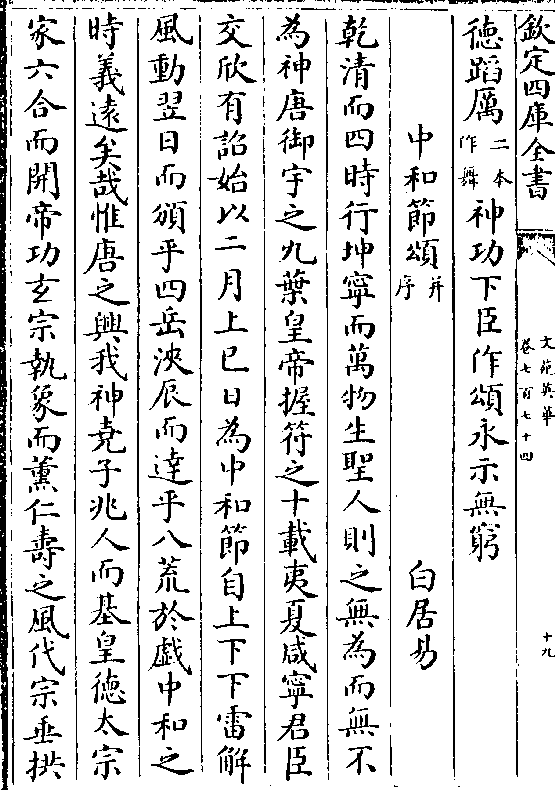 欽定四庫全書
文苑英華
卷七百七十四
十九
德蹈厲二本作舞神功下臣作頌永示無窮
中和節頌并序
白居易
乾清而四時行坤寧而萬物生聖人則之無為而無不
為神唐御宇之九葉皇帝握符之十載夷夏咸寧君臣
交欣有詔始以二月上巳日為中和節自上下下雷解
風動翌日而頒乎四岳浹辰而達乎八荒於戲中和之
時義遠矣哉惟唐之興我神堯子兆人而基皇德太宗
家六合而開帝功玄宗執象而薰仁壽之風代宗垂拱